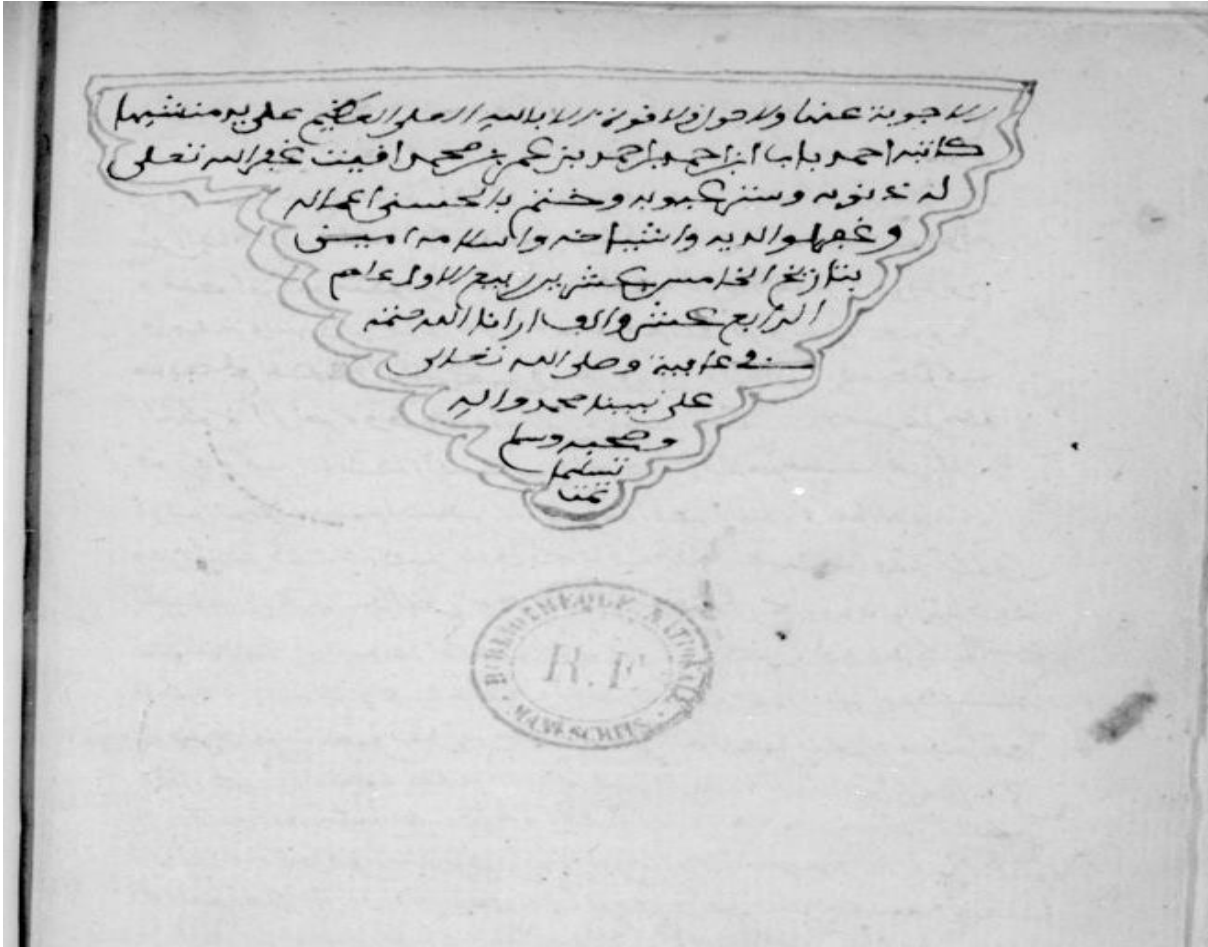 الاجوبة عنها ولا حول ولا قوة الا بالله العلي العظيم على يد منشيها
كاتبه احمد بابا ابن احمد بن احمد بن عمر بن محمد اقيت غفر الله تعلى
له ذنوبه وستر عيوبه وختم بالحسنى اعماله
وغفر لوالديه واشياخه واسلافه امين
بتاريخ الخامس عشر من ربيع الاول عام
الرابع عشر والف ارانا الله ختمه
في عافية وصلى الله تعالى
على نبينا محمد واله
وصحبه وسلم
تسليما
تمت
BIBLIOTHEQUE NATIONALE
R.F
MANUSCRITS